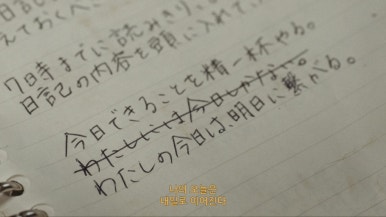 えておくべ
7日寺までに読みきり、
日記の内容を頭に入れて
今日できることを精一杯やる。
わたしには今日しかない。
わたしの今日は、明日に繋がる。
나의 오늘은
내일로 이어진다